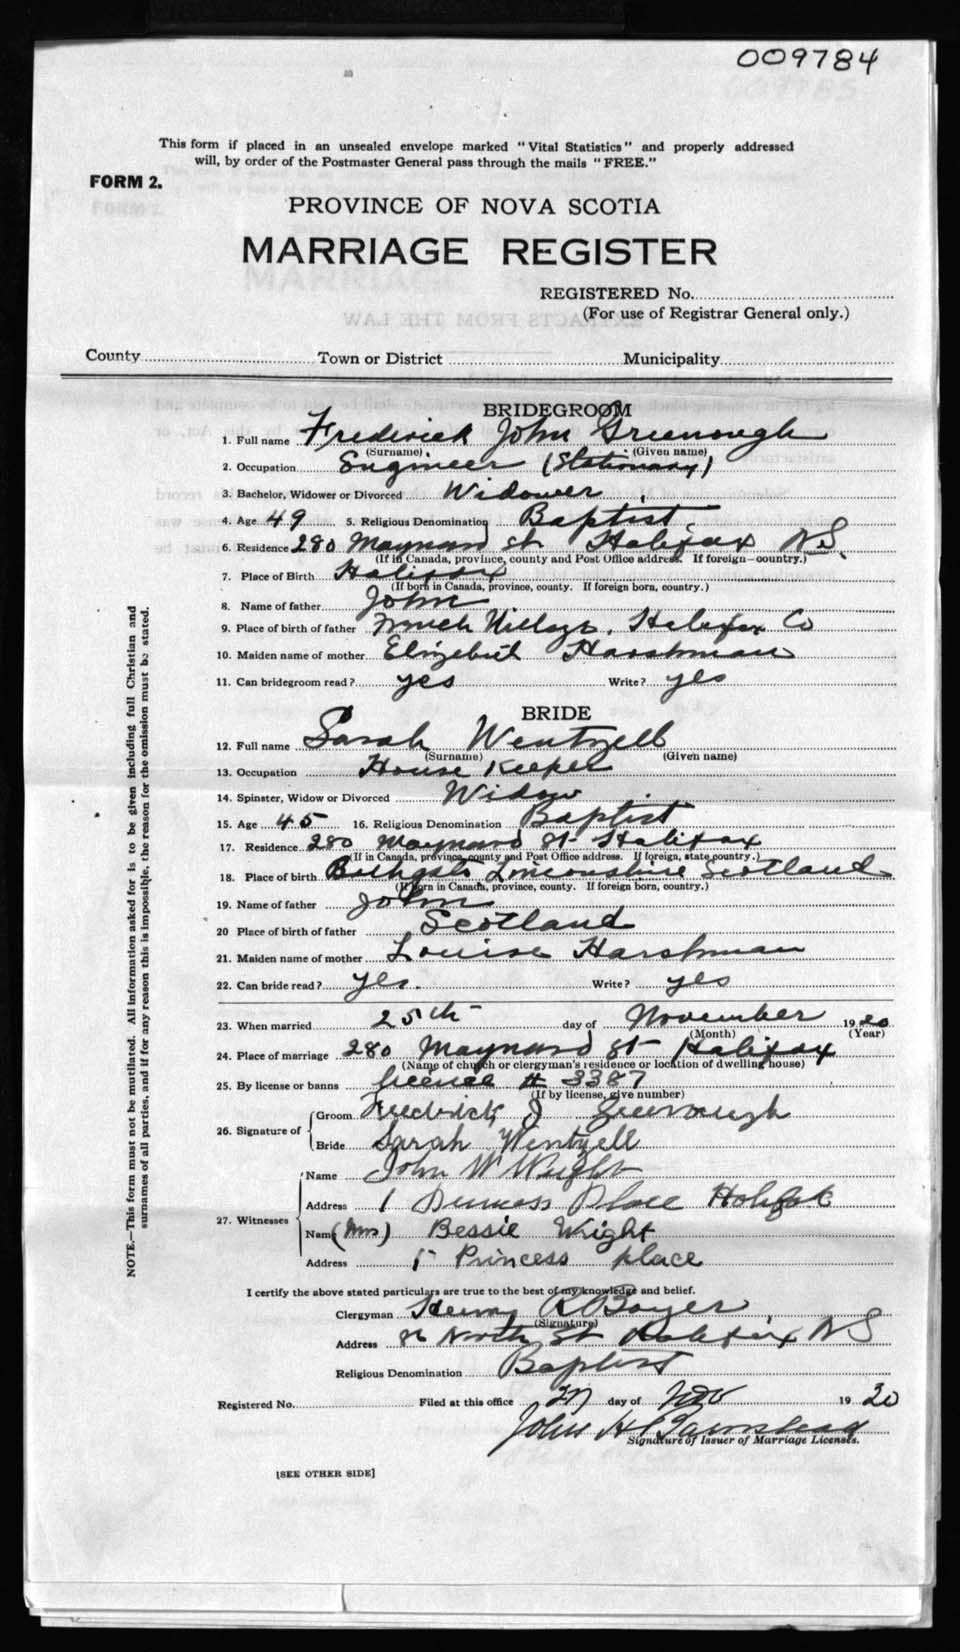 009784
This form if placed in an unsealed envelope marked "Vital Statistics" and properly addressed
will, by order of the Postmaster General pass through the mails "FREE."
FORM 2.
PROVINCE OF NOVA SCOTIA
MARRIAGE REGISTER
REGISTERED No.
(For use of Registrar General only.)
County Town or District Municipality
BRIDEGROOM
1. Full name Frederick John Greenough
(Surname) (Given name)
2. Occupation Engineer (Stationary)
3. Bachelor, Widower or Divorced Widower
4. Age 49 5. Religious Denomination Baptist
6. Residence 280 Maynard St Halifax N.S.
(If in Canada, province, county and Post Office address. If foreign—country.)
7. Place of Birth Halifax
(If born in Canada, province, county. If foreign born, country.)
8. Name of father John
9. Place of birth of father French Village, Halifax Co
10. Maiden name of mother Elizebeth Harshman
11. Can bridegroom read? yes Write? yes
BRIDE
12. Full name Sarah Wentzell
(Surname) (Given name)
13. Occupation House Keeper
14. Spinster, Widow or Divorced Widow
15. Age 45 16. Religious Denomination Baptist
17. Residence 280 Maynard St Halifax
(If in Canada, province, county and Post Office address. If foreign, state country.)
18. Place of birth Scotland
(If born in Canada, province, county. If foreign born, country.)
19. Name of father John
20 Place of birth of father Scotland
21. Maiden name of mother Louise Harshman
22. Can bride read? yes. Write? yes
23. When married 25th day of November 1920
(Month) (Year)
24. Place of marriage 280 Maynard St Halifax
(Name of church or clergyman's residence or location of dwelling house)
25. By license or banns licence # 3387
(If by license, give number)
26. Signature of Groom Frederick J Greenough
Bride Sarah Wentzell
27. Witnesses Name John W Wright
Address 1 Place Halifax
Name (Mrs) Bessie Wright
Address 1 Princess place
I certify the above stated particulars are true to the best of my knowledge and belief.
Clergyman Henry R Boyer
(Signature)
Address North St Halifax NS
Religious Denomination Baptist
Registered No. Filed at this office 27 day of Nov 1920
John H
Signature of Issuer of Marriage Licenses.
[SEE OTHER SIDE]
NOTE.—This form must not be mutilated. All information asked for is to be given including full Christian and
surnames of all parties, and if for any reason this is impossible, the reason for the omission must be stated.